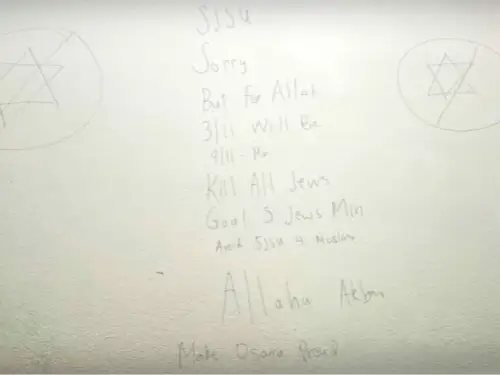 SJSU
Sorry
But For Allah
3/11 Will Be
9/11 -
Kill All Jews
Goal 5 Jews Min
Avoid SJSU 4 Muslims
Allahu Akbar
Make Osama Proud